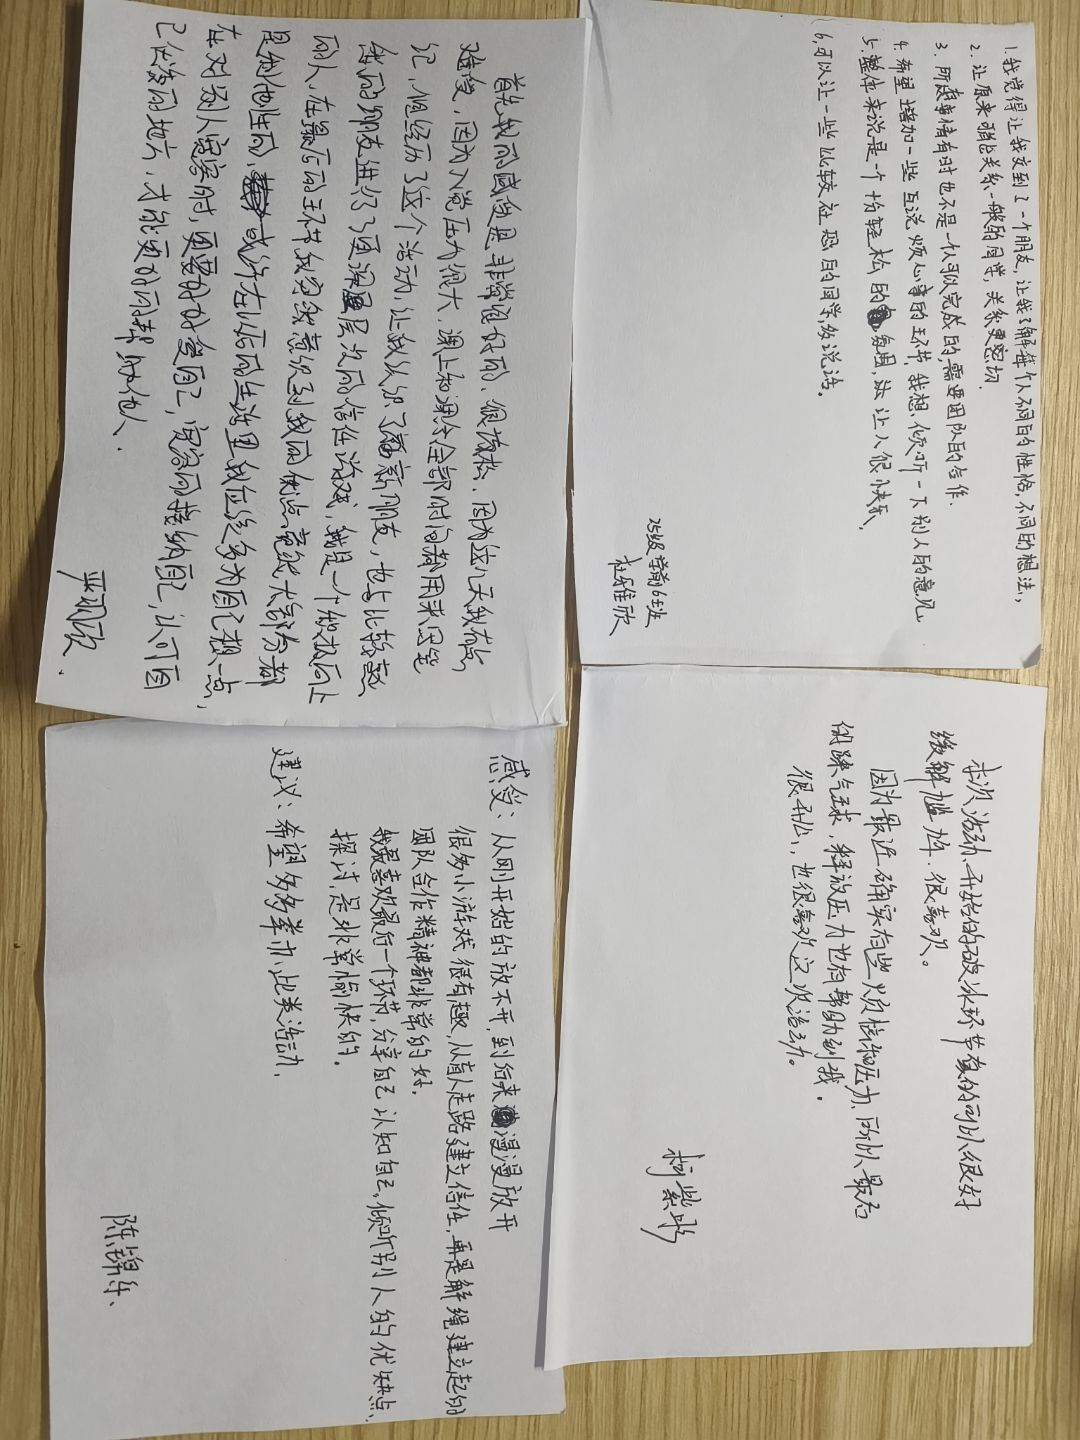 1.我觉得让我交到了一个朋友，让我了解每个人不同的性格，不同的想法，
2.让原来稍比关系一般的同学，关系更密切.
3.所愿事情有时也不是一个人可以完成的，需要团队的合作.
4.希望增加一些互说烦心事的环节，我想，倾听一下别人的意见
5.整体来说是一个十分轻松的氛围，让人很快乐，
6.可以让一些比较社恐的同学多说话。
25级学前6班
杜雅欣
首先我的感受是非常的好的，很放松，因为这几天我有点
难受，因为入党压力很大，课上和课余全部时间都用来写笔
记，但经历了这个活动，让我认识了新朋友，也与比较熟
的朋友进行了更深层次的信任游戏，我是一个很极向上
的人，在最后的环节我突然意识到我的优点竟然大部分都
是利他性的，或许在以后的生活里我应该多为自己想一点，
在对别人宽容时，更要好好爱自己，宽容的接纳自己，认可自
己优秀的地方，才能更好的帮助他人.
本次活动、开始的破冰环节真的可以很好
缓解尴尬，很喜欢。
因为最近确实有些烦恼和压力、所以最后
的踩气球，释放压力也有帮助到我。
很开心、也很喜欢这次活动。
柯紫彤
感受：从刚开始的放不开，到后来慢慢放开
很多小游戏很有趣，从盲人走路建立信任，再是解绳建立起的
团队合作精神都非常的好.
我最喜欢最后一个环节，分享自己认知自己，倾听别人的优缺点、
探讨，是非常愉快的。
建议：希望多多举办此类活动.
陈锦乐、